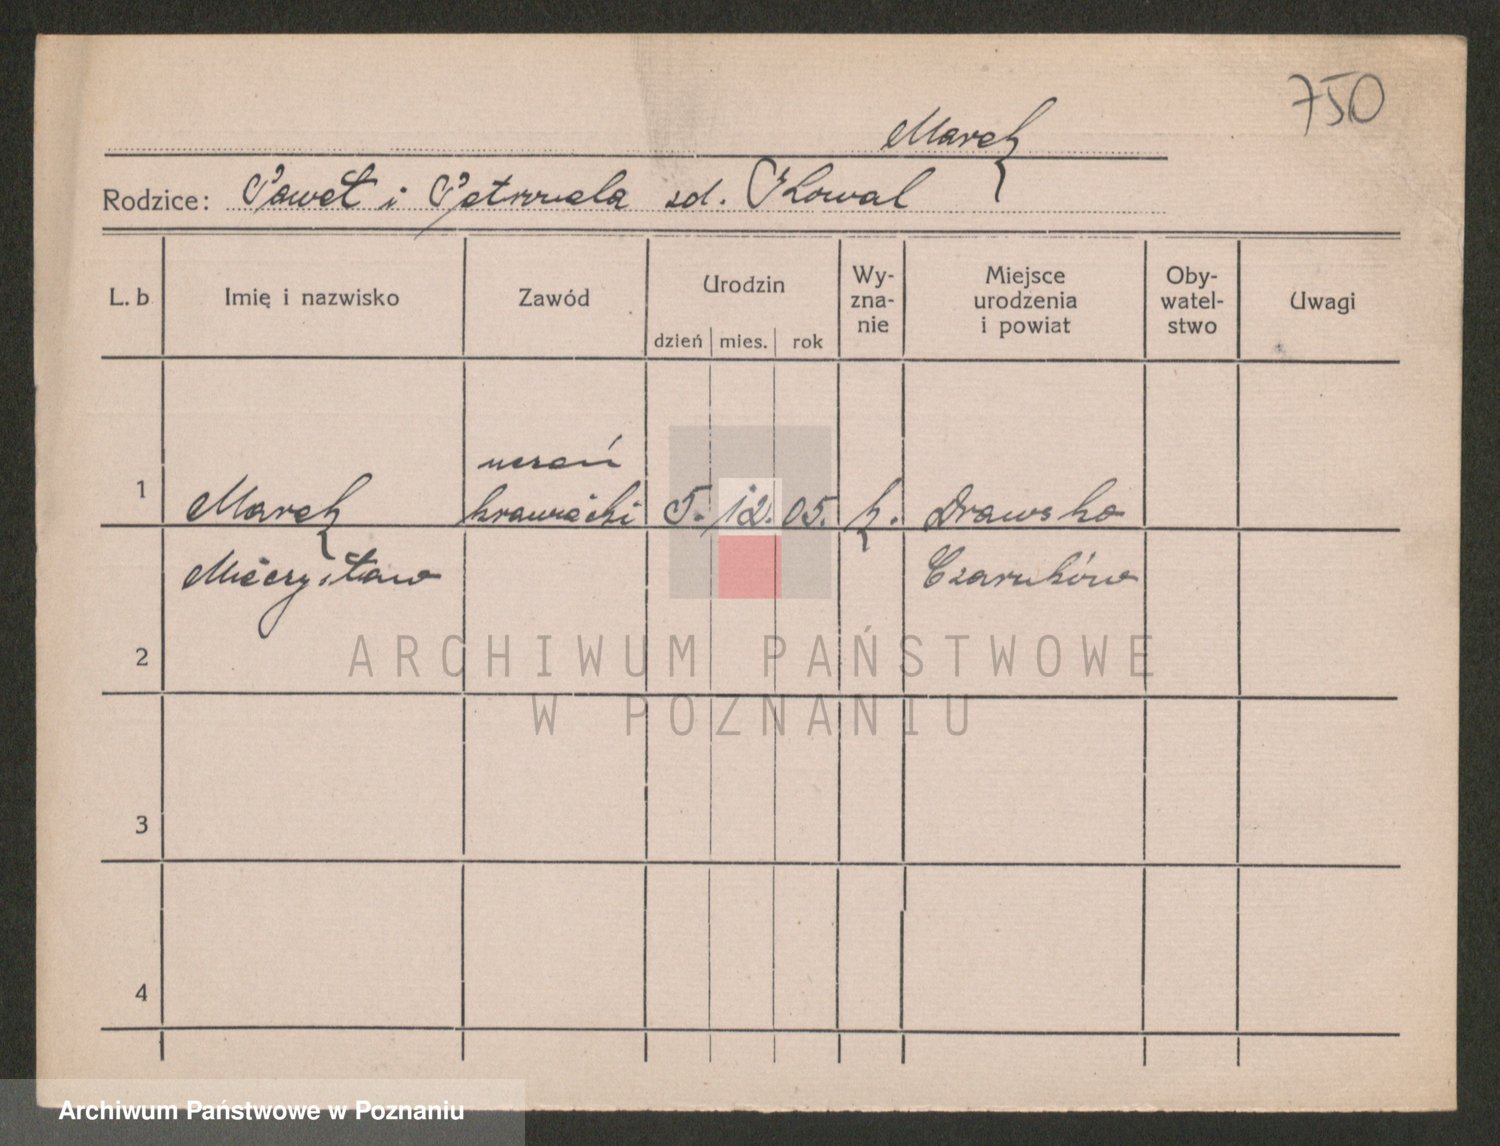 750
Marek
Rodzice: Paweł i Petronela zd. Kowal
L. b Imię i nazwisko Zawód Urodzin Wy-zna-nie Miejsce urodzenia i powiat Oby-watel-stwo Uwagi
dzień mies. rok
uczeń
1 Marek krawiecki 5. 12. 05. k. Drawsko
Mieczysław Czarnków
2
ARCHIWUM PAŃSTWOWE
W POZNANIU
3
4
Archiwum Państwowe w Poznaniu